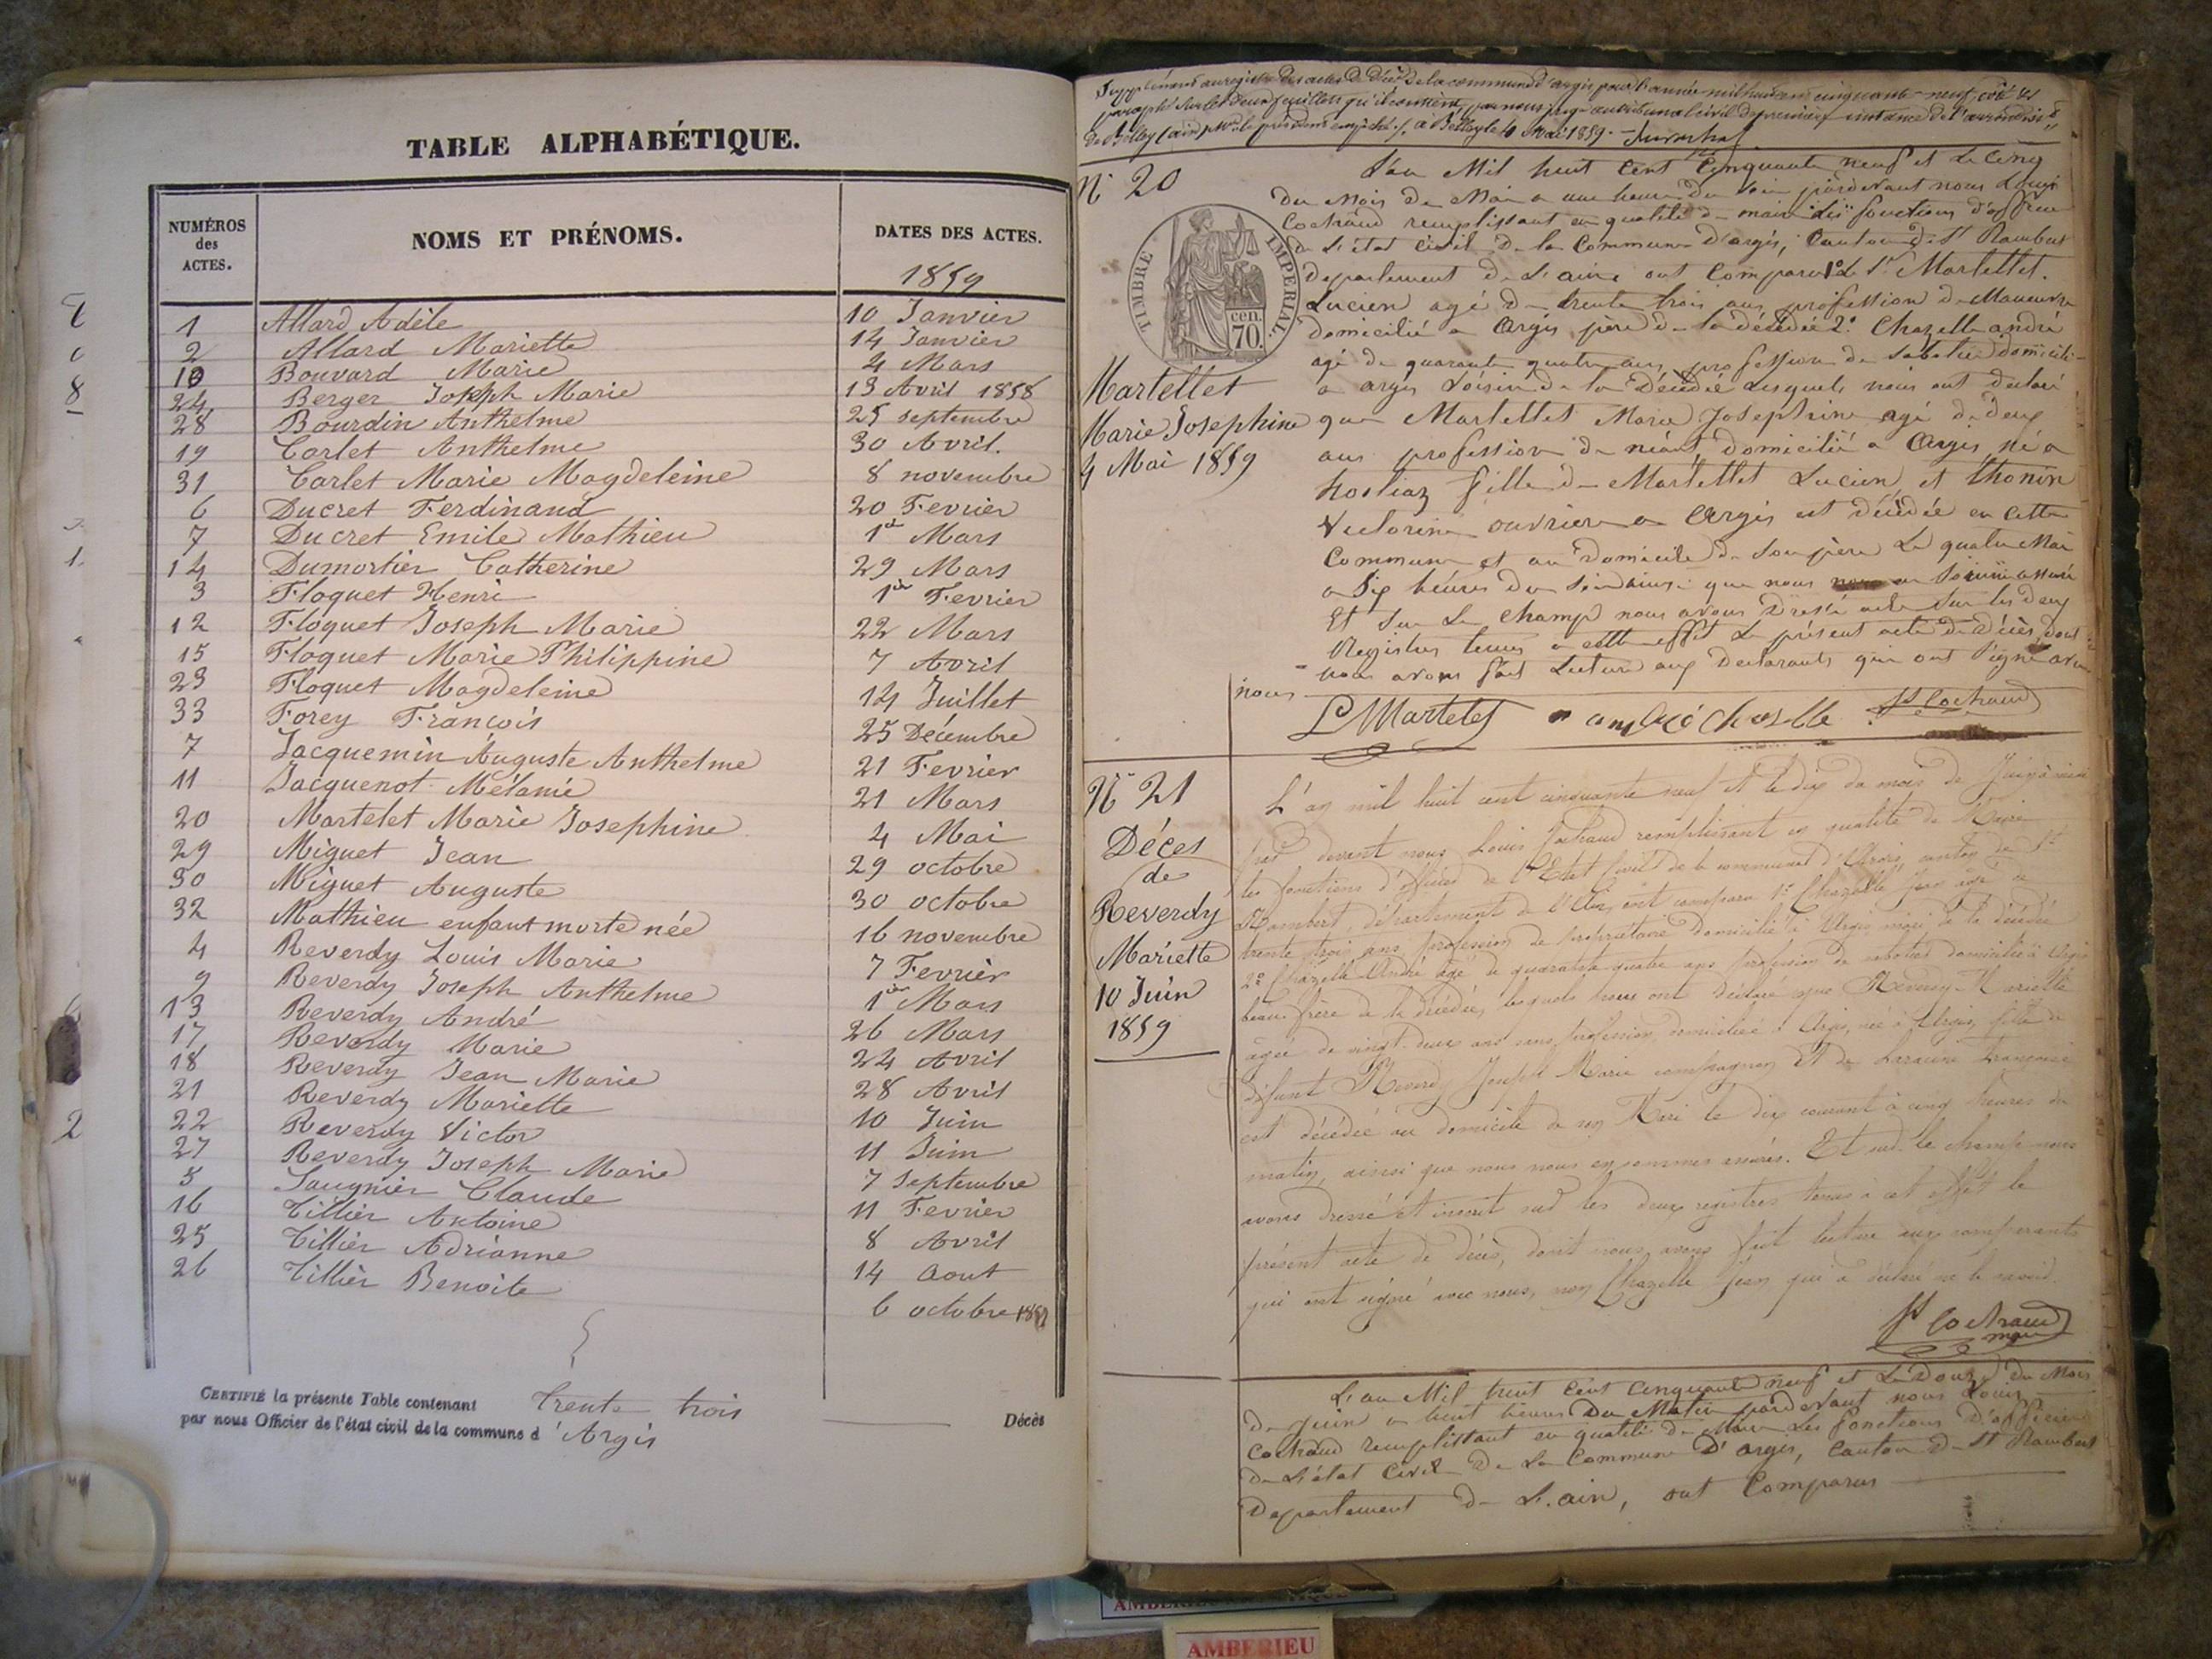 TABLE ALPHABÉTIQUE.
NUMÉROS des ACTES. NOMS ET PRÉNOMS. DATES DES ACTES.
1859
1 Allard Adèle 10 Janvier
2 Allard Mariette 14 Janvier
10 Bouvard Marie 4 Mars
24 Berger Joseph Marie 13 Avril 1858
28 Bourdin Anthelme 25 septembre
19 Carlet Anthelme 30 Avril.
31 Carlet Marie Magdeleine 8 novembre
6 Ducret Ferdinand 20 Fevrier
7 Ducret Emile Mathieu 1er Mars
14 Dumortier Catherine 29 Mars
3 Floquet Henri 1er Fevrier
12 Floquet Joseph Marie 22 Mars
15 Floquet Marie Philippine 7 Avril
23 Floquet Magdeleine 14 Juillet
33 Forey François 25 Décembre
7 Jacquemin Auguste Anthelme 21 Fevrier
11 Jacquenot Mélanie 21 Mars
20 Martelet Marie Josephine 4 Mai
29 Miguet Jean 29 octobre
30 Miguet Auguste 30 octobre
32 Mathieu enfant morte née 16 novembre
4 Reverdy Louis Marie 7 Fevrier
9 Reverdy Joseph Anthelme 1er Mars
13 Reverdy André 26 Mars
17 Reverdy Marie 24 Avril
18 Reverdy Jean Marie 28 Avril
21 Reverdy Mariette 10 Juin
22 Reverdy Victor 11 Juin
27 Reverdy Joseph Marie 7 Septembre
5 Saugnier Claude 11 Fevrier
16 Tillier Antoine 8 Avril
25 Tillier Adrianne 14 Aout
26 Tillier Benoite 6 octobre
CERTIFIÉ la présente Table contenant trente trois Décès
par nous Officier de l'état civil de la commune d'Argis
Supplément au registre des actes de Décès de la commune d'argis pour l'année mil huit cent cinquante-neuf, coté et
paraphé sur les deux feuillets qu'il contient, par nous juge au tribunal civil de première instance de l'arrondiss.
de Belley (ain) le président empêché, à Belley le 10 Mai 1859.
N° 20
Martellet
Marie Josephine
4 Mai 1859
TIMBRE IMPERIAL.
70 cen.
L'an Mil huit Cent Cinquante neuf et le Cinq
du Mois de Mai a une heure du soir pardevant nous Louis
Cochraud remplissant en qualité de maire les fonctions d'officier
de l'état civil de la Commune d'argis, Canton de St Rambert
departement de l'ain ont Comparu 1° le Sr Martellet.
Lucien agé de trente trois ans profession de Maneuvre
domicilié a Argis père de la décédée 2° Chazelle andré
agé de quarante quatre ans profession de sabotier domicilié
a argis voisin de la Décédée Lesquels nous ont declaré
que Martellet Marie Josephine agé de deux
ans profession de néant, domicilié a Argis né a
hostiaz fille de Martellet Lucien et thonin
Victorine ouvriere a Argis est décédée en cette
Commune et au Domicile de son père Le quatre Mai
a Six heures du Soir ainsi que nous nous en sommes assuré
Et Sur Le Champ nous avons Dressé acte Sur les deux
Registres tenus a cette effet Le présent acte de Décès, dont
nous avons fait Lecture aux Declarants qui ont signé avec
nous
L Martelet andré Chazelle Ls Cochraud
N° 21
Déces
de
Reverdy
Mariette
10 Juin
1859
L'an mil huit cent cinquante neuf et le dix du mois de Juin à midi
par devant nous Louis Cochraud remplissant en qualité de Maire
les fonctions d'officier de l'Etat Civil de la commune d'Argis, canton de St
Rambert, département de l'Ain, ont comparu 1° Chazelle Jean agé de
trente trois ans, profession de propriétaire domicilié à Argis, mari de la décédée
2° Chazelle André agé de quarante quatre ans profession de sabotier domicilié à Argis
beau frère de la décédée, lesquels nous ont déclaré que Reverdy Mariette
agée de vingt deux ans sans profession, domiciliée à Argis, née à Argis, fille de
défunt Reverdy Joseph Marie et de Françoise
est décédée au domicile de son Mari le dix courant à cinq heures du
matin, ainsi que nous nous en sommes assurés. Et sur le champ nous
avons dressé et inscrit sur les deux registres tenus à cet effet le
présent acte de décès, dont nous avons fait lecture aux comparants
qui ont signé avec nous, non Chazelle Jean qui a déclaré ne le savoir.
Ls Cochraud
maire
L'an Mil huit Cent Cinquante neuf et Le Douze du Mois
de Juin a huit heures Du Matin pardevant nous Louis
Cochraud remplissant en qualité de Maire Les fonctions D'officier
De L'état Civil De La Commune D'argis, Canton de St Rambert
Departement de L'ain, ont Comparus
AMBERIEU